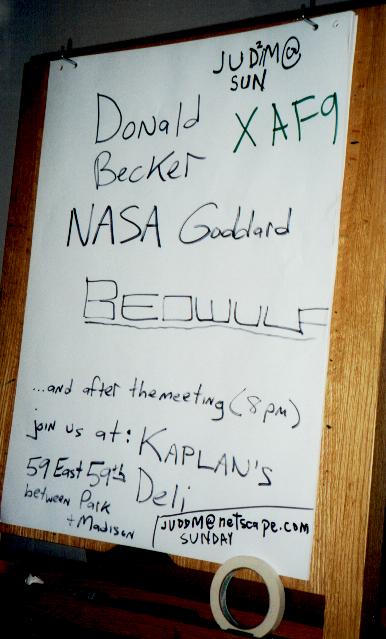 JUD²M@
SUN
XAF9
Donald
Becker
NASA Goddard
BEOWULF
...and after the meeting (8 pm)
join us at: KAPLAN'S
Deli
59 East 59th
between Park
+ Madison
JUDDM@netscape.com
SUNDAY